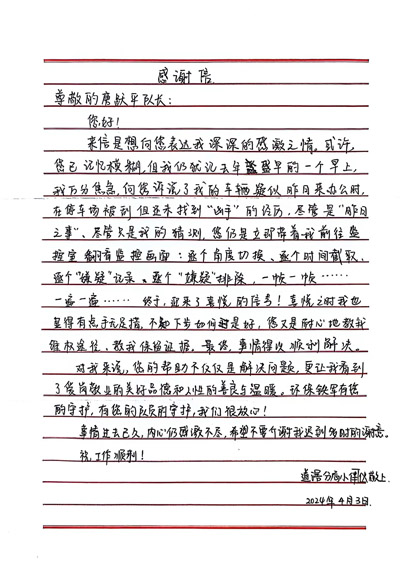 感谢信
尊敬的唐跃平队长：
您好！
来信是想向您表达我深深的感激之情。或许，
您已记忆模糊，但我仍然记去年盛早的一个早上，
我万分焦急，向您诉说了我的车辆疑似昨日来办公时，
在您车场被刮但并未找到“凶手”的经历，尽管是“昨日
之事”、尽管只是我的猜测，您仍是立即带着我前往监
控室翻看监控画面：逐个角度切换、逐个时间截取、
逐个“嫌疑”记录、逐个“嫌疑”排除，一帧一帧……
一遍一遍……终于，迎来了喜悦的信号！喜悦之时我也
显得有点手足无措，不知下步如何是好，您又是耐心地教我
维权途径、教我保留证据。最终，事情得以顺利解决。
对我来说，您的帮助不仅仅是解决问题，更让我看到
了爱岗敬业的美好品德和人性的善良与温暖。环保铁军有您
的守护，有您的应质的守护，我们很放心！
事情过去已久，内心仍感激不尽，希望不要介意我迟到多时的谢意。
祝工作顺利！
分局小 敬上
2024年4月3日